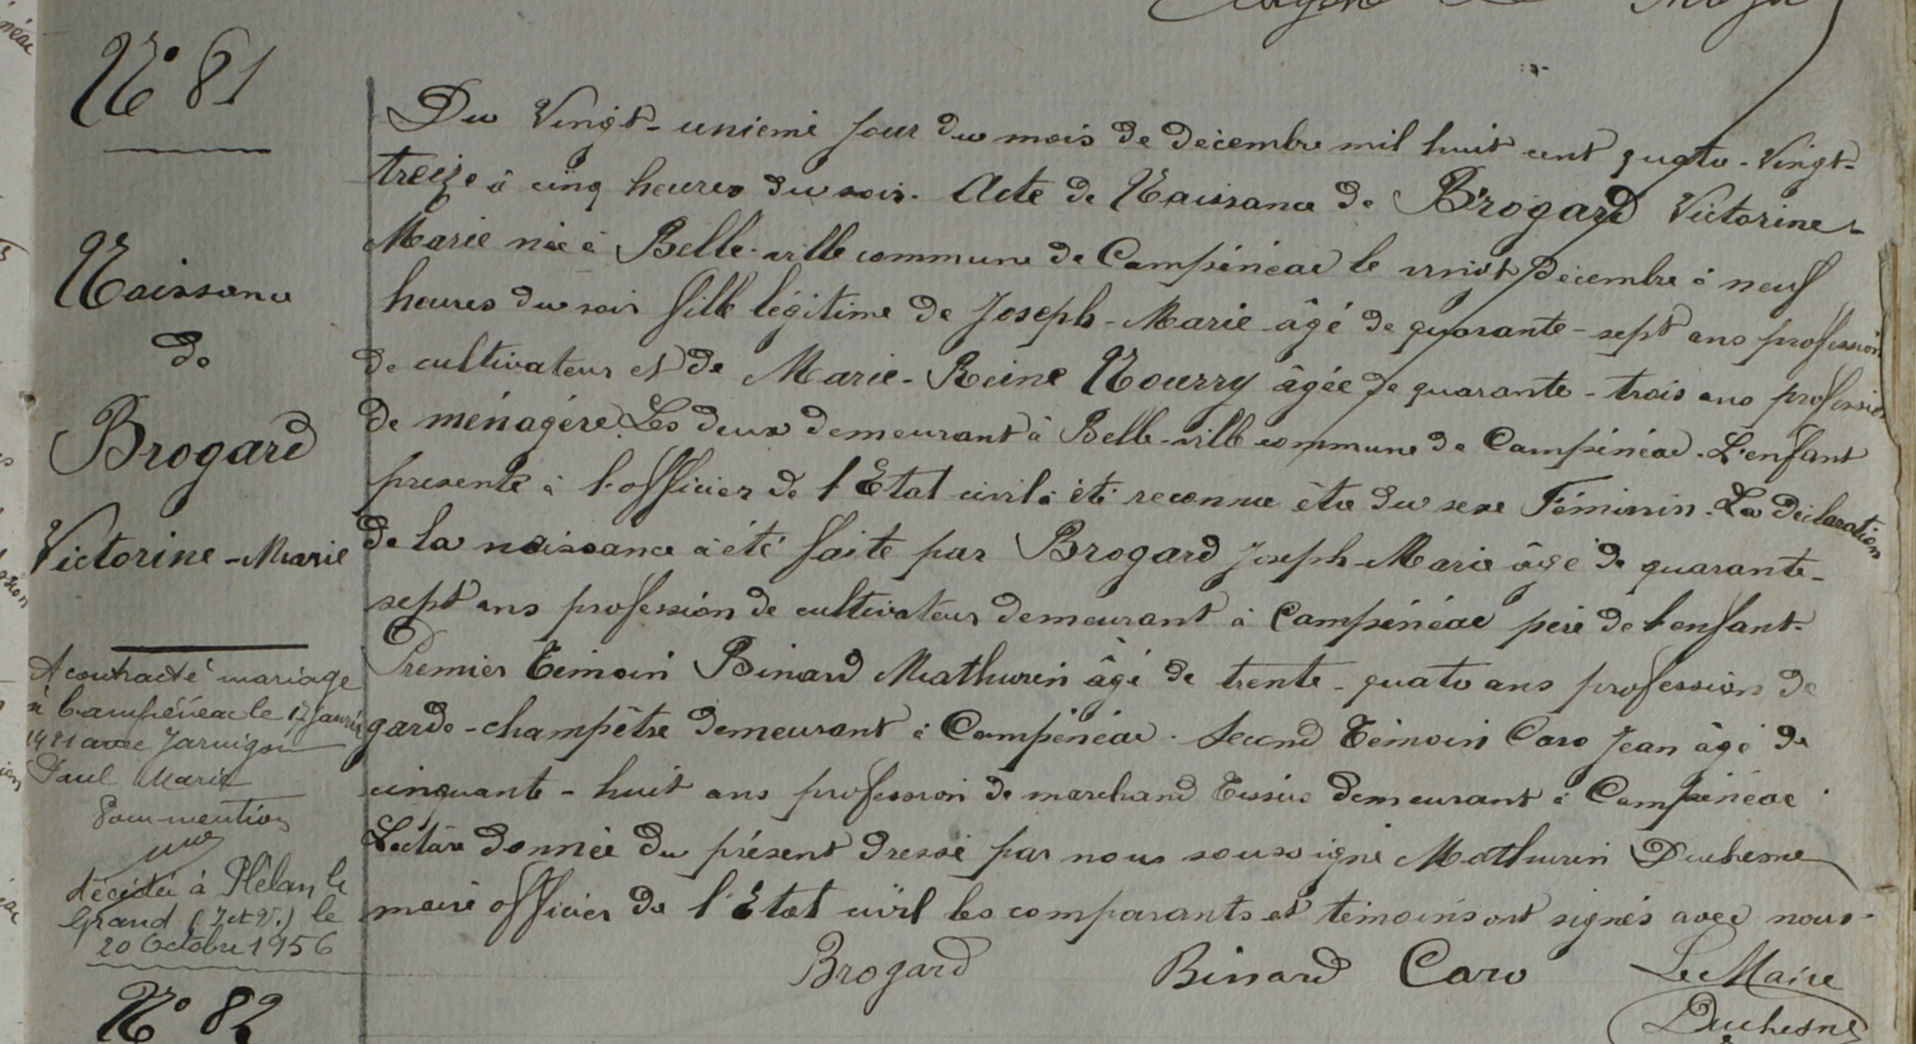 N° 81
Naissance
de
Brogard
Victorine-Marie
A contracté mariage
à Campénéac le 17 janvier
avec Jarnigon
Paul Marie
Pour mention
décédée à Plélan le
Grand (I et V.) le
20 Octobre 1956
Du Vingt-unième jour du mois de décembre mil huit cent quatre-Vingt-
treize à cinq heures du soir. Acte de Naissance de Brogard Victorine-
Marie née à Belle-ville commune de Campénéac le vingt Décembre à neuf
heures du soir fille légitime de Joseph-Marie âgé de quarante-sept ans profession
de cultivateur et de Marie-Reine Nourry âgée de quarante-trois ans profession
de ménagère. Les deux demeurant à Belle-ville commune de Campénéac. L'enfant
présenté à l'officier de l'Etat civil a été reconnu être du sexe Féminin. La déclaration
de la naissance a été faite par Brogard Joseph-Marie âgé de quarante-
sept ans profession de cultivateur demeurant à Campénéac père de l'enfant.
Premier Témoin Binard Mathurin âgé de trente-quatre ans profession de
garde-champêtre demeurant à Campénéac. Second Témoin Caro Jean âgé de
cinquante-huit ans profession de marchand Tissus demeurant à Campénéac
Lecture donnée du présent dressé par nous soussigné Mathurin Duchesne
maire officier de l'Etat civil les comparants et témoins ont signés avec nous.
Brogard Binard Caro Le Maire
Duchesne
N° 82